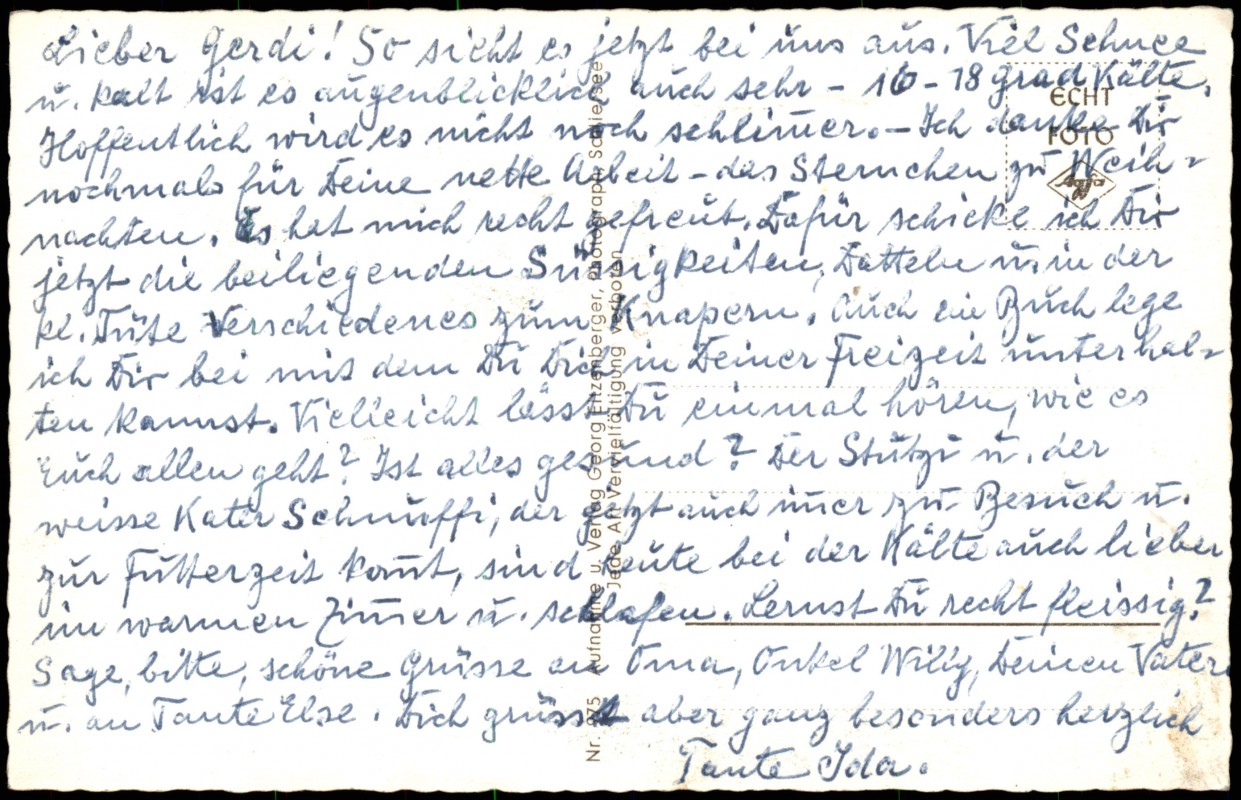 Lieber Gerdi! So sieht es jetzt bei uns aus. Viel Schnee
u. kalt ist es augenblicklich auch sehr - 16 - 18 Grad Kälte.
Hoffentlich wird es nicht noch schlim̅er. - Ich danke Dir
nochmals für Deine nette Arbeit - das Sternchen zu Weih-
nachten. Es hat mich recht gefreut. Dafür schicke ich Dir
jetzt die beiliegenden Süssigkeiten, Datteln u. in der
kl. Tüte Verschiedenes zum Knapern. Auch ein Buch lege
ich Dir bei mit dem Du Dich in Deiner Freizeit unterhal-
ten kannst. Vielleicht lässt Du einmal hören, wie es
Euch allen geht? Ist alles gesund? Der Stutzi u. der
weisse Kater Schnuffi, der jetzt auch im̅er zu Besuch u.
zur Futterzeit kom̅t, sind heute bei der Kälte auch lieber
im warmen Zim̅er u. schlafen. Lernst Du recht fleissig?
Sage, bitte, schöne Grüsse an Oma, Onkel Willy, Deinen Vater
u. an Tante Else. Dich grüsst aber ganz besonders herzlich
Tante Ida.
ECHT
FOTO
Agfa
Nr. 975 Aufnahme u. Verlag Georg Eitzenberger, Photograph, Schliersee
Jede Art Vervielfältigung verboten